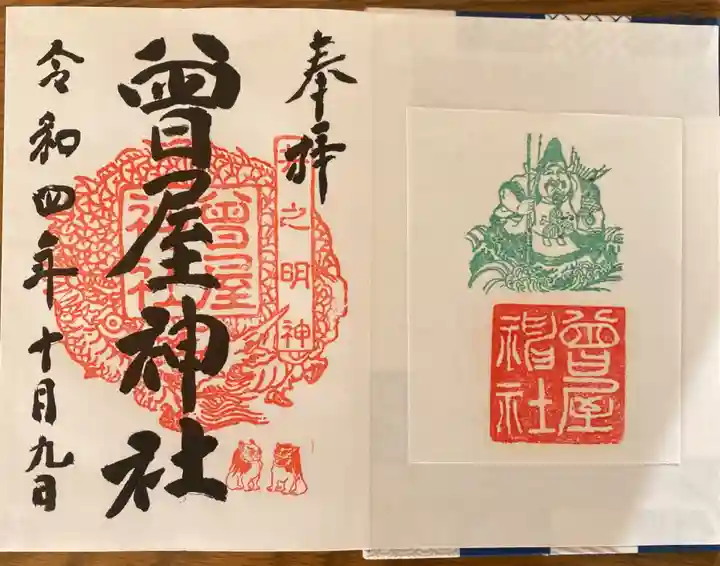 奉拝
井之明神
曽屋神社
曽屋神社
令和四年十月九日
曽屋神社